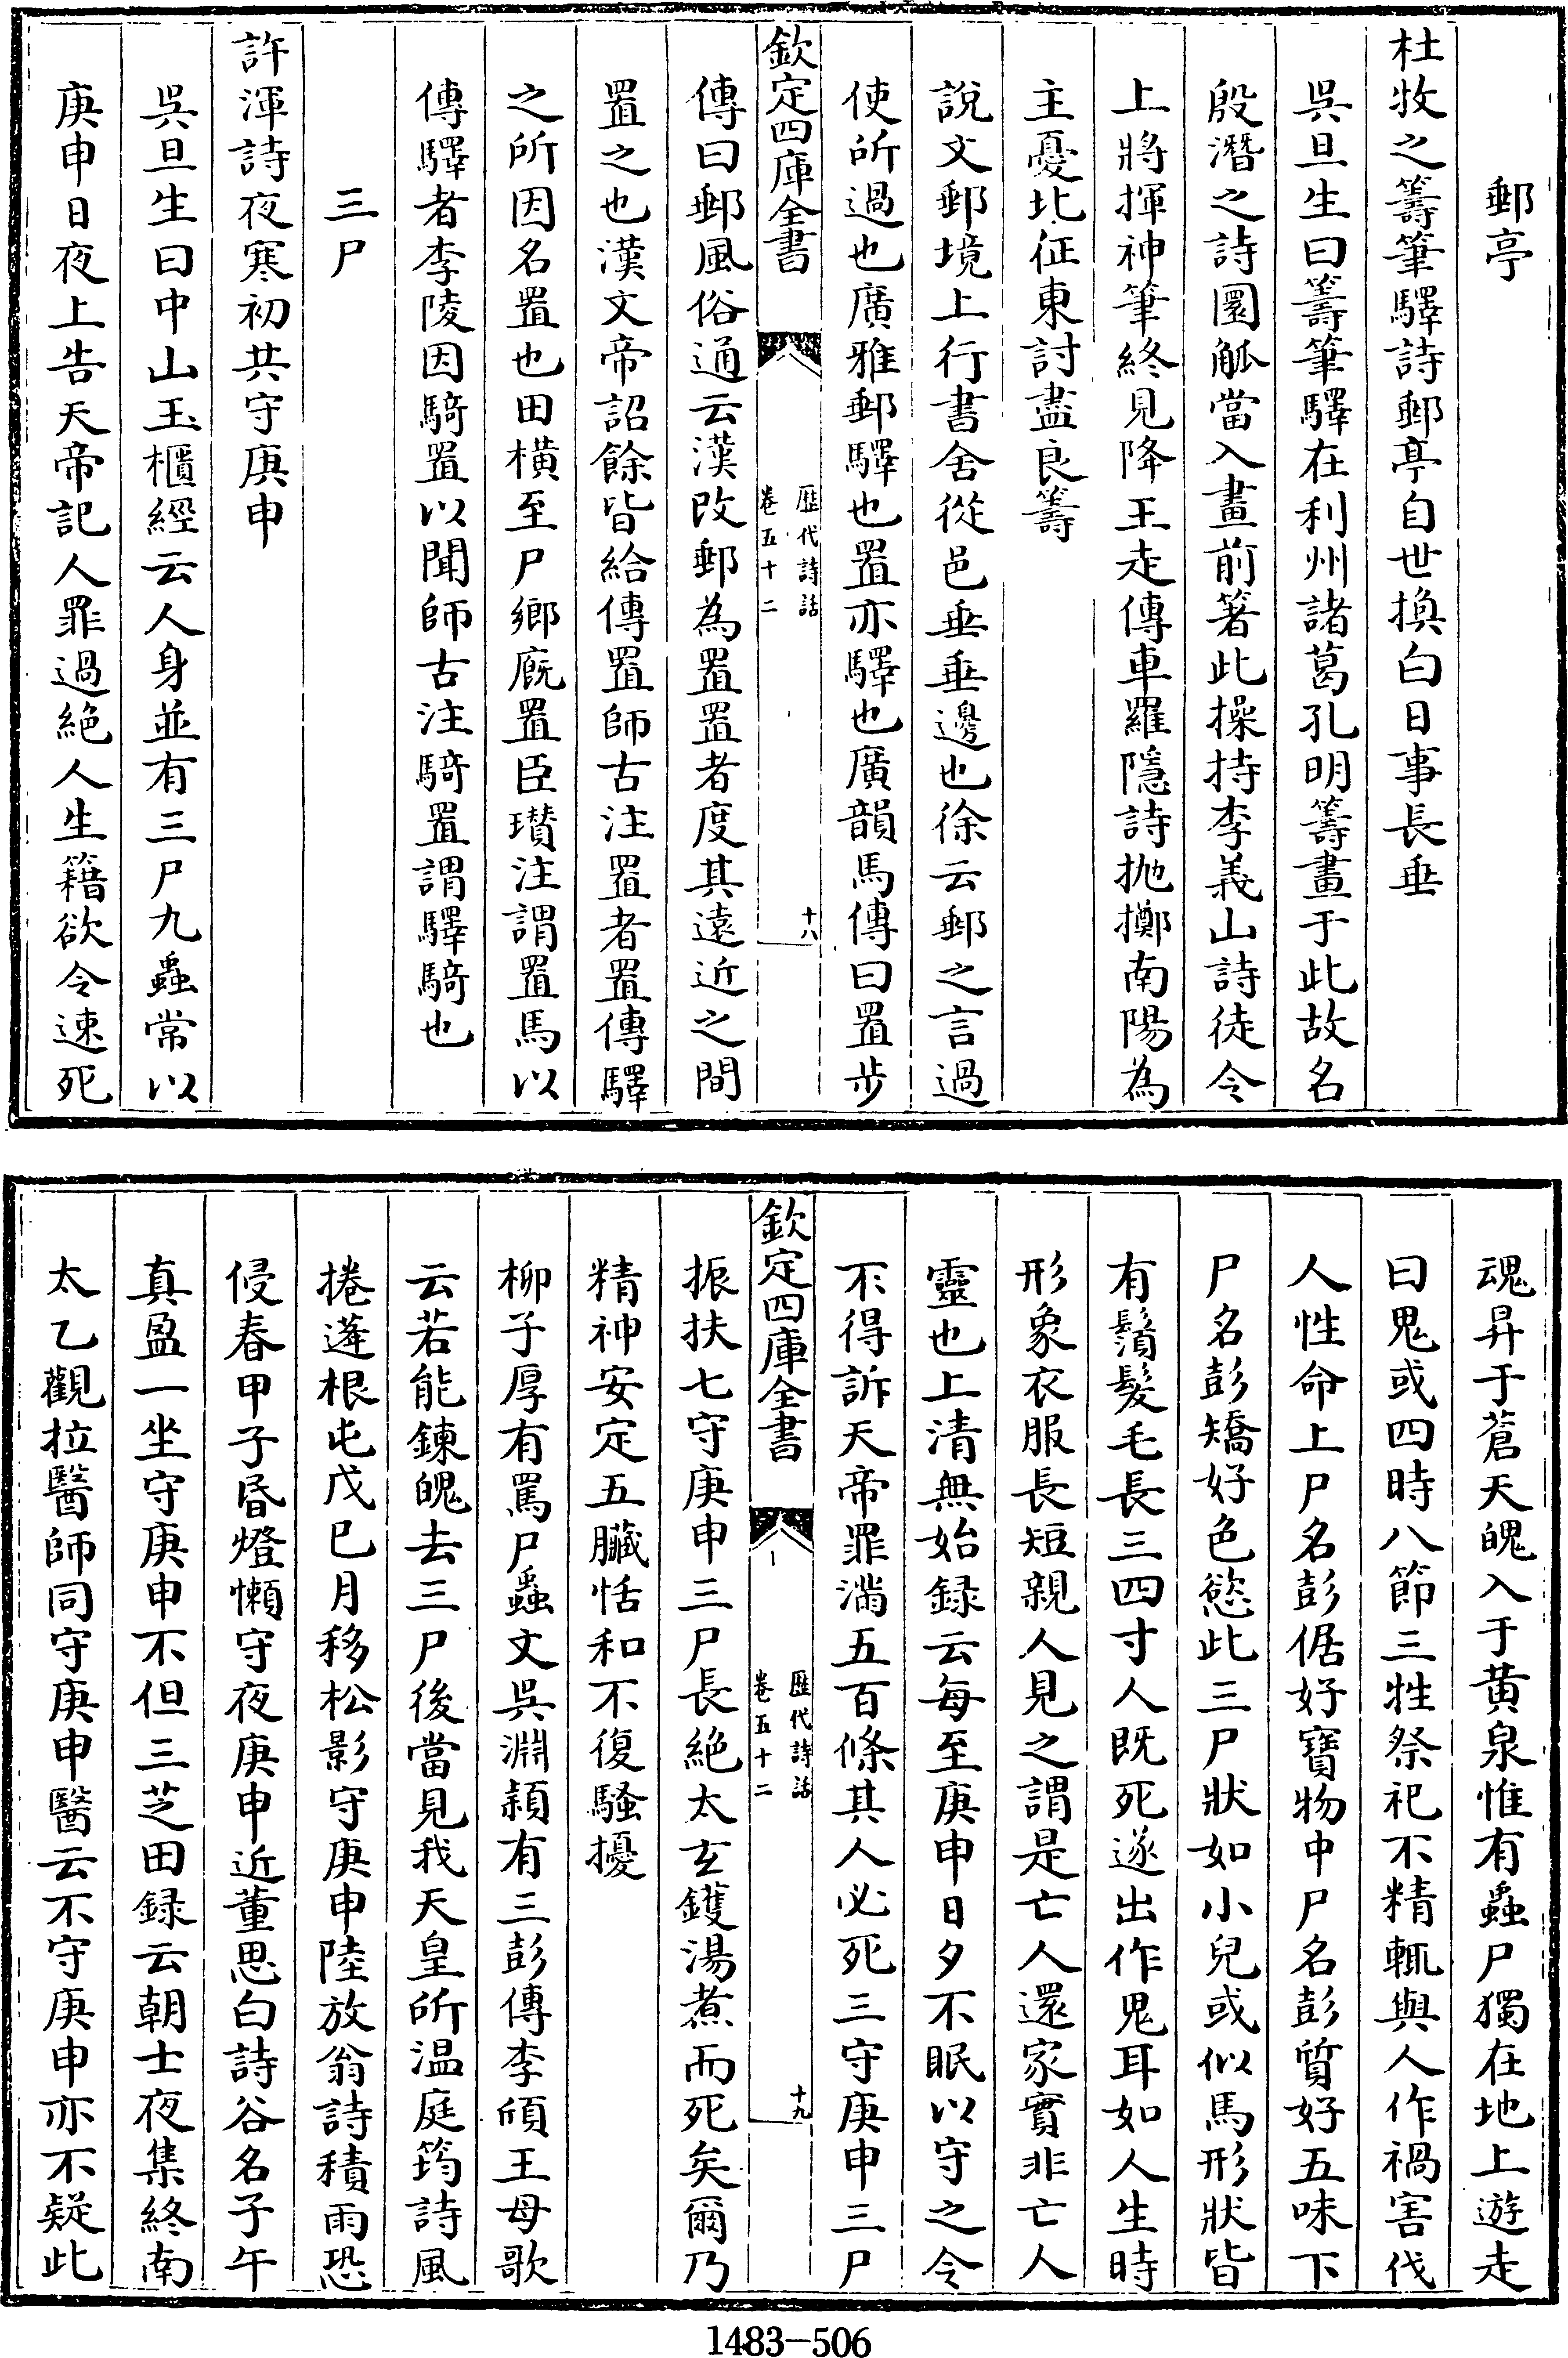 郵亭
杜牧之籌筆驛詩郵亭自世換白日事長垂
吳旦生曰籌筆驛在利州諸葛孔明籌畫于此故名
殷潛之詩圜觚當入畫前箸此操持李義山詩徒令
上將揮神筆終見降王走傳車羅隱詩抛擲南陽為
主憂北征東討盡良籌
說文郵境上行書舍從邑垂垂邊也徐云郵之言過
使所過也廣雅郵驛也置亦驛也廣韻馬傳曰置步
欽定四庫全書
歷代詩話
卷五十二
十八
傳曰郵風俗通云漢改郵為置置者度其遠近之間
置之也漢文帝詔餘皆給傳置師古注置者置傳驛
之所因名置也田橫至尸鄉廐置臣瓚注謂置馬以
傳驛者李陵因騎置以聞師古注騎置謂驛騎也
三尸
許渾詩夜寒初共守庚申
吳旦生曰中山玉櫃經云人身並有三尸九蟲常以
庚申日夜上告天帝記人罪過絕人生籍欲令速死
魂昇于蒼天魄入于黄泉惟有蟲尸獨在地上遊走
曰鬼或四時八節三牲祭祀不精輒與人作禍害伐
人性命上尸名彭倨好寶物中尸名彭質好五味下
尸名彭矯好色慾此三尸狀如小兒或似馬形狀皆
有鬚髮毛長三四寸人既死遂出作鬼耳如人生時
形象衣服長短親人見之謂是亡人還家實非亡人
靈也上清無始録云每至庚申日夕不眠以守之令
不得訴天帝罪滿五百條其人必死三守庚申三尸
欽定四庫全書
歷代詩話
卷五十二
十九
振扶七守庚申三尸長絕太玄鑊湯煮而死矣爾乃
精神安定五臟恬和不復騷擾
柳子厚有罵尸蟲文吳淵穎有三彭傳李頎王母歌
云若能鍊魄去三尸後當見我天皇所温庭筠詩風
捲蓬根屯戊巳月移松影守庚申陸放翁詩積雨恐
侵春甲子昏燈懶守夜庚申近董思白詩谷名子午
真盈一坐守庚申不但三芝田録云朝士夜集終南
太乙觀拉醫師同守庚申醫云不守庚申亦不疑此
1483-506